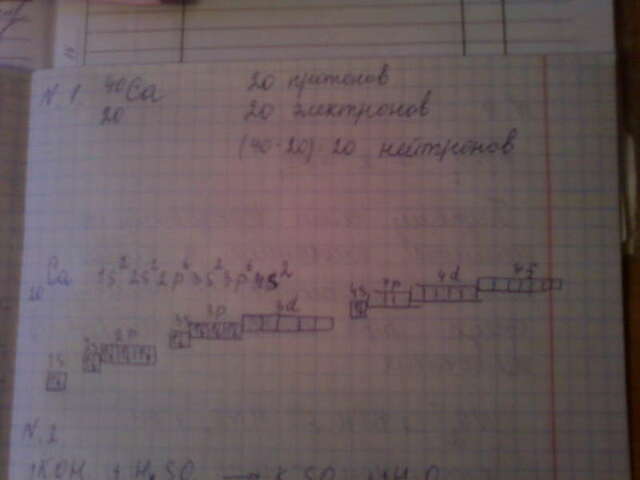 N. 1 ⁴⁰₂₀Ca 20 протонов
20 электронов
(40-20) 20 нейтронов
₂₀Ca 1s² 2s² 2p⁶ 3s² 3p⁶ 4s²
1s 2s 2p 3s 3p 3d 4s 4p 4d 4f
N. 2
KOH + H₂SO